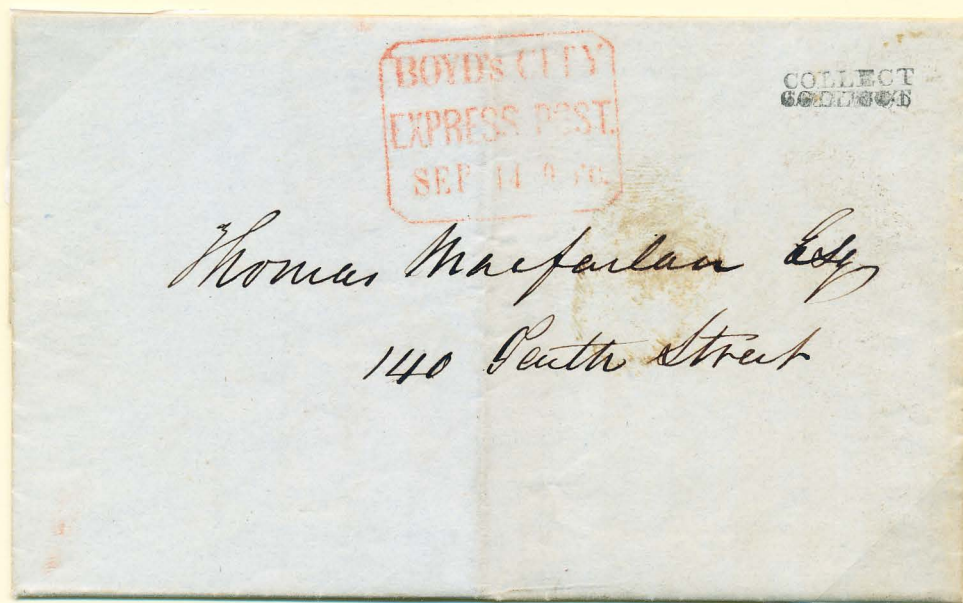 BOYD's CITY
EXPRESS POST.
SEP 14
COLLECT
COLLECT
Thomas Macfarlan Esq
140 Tenth Street